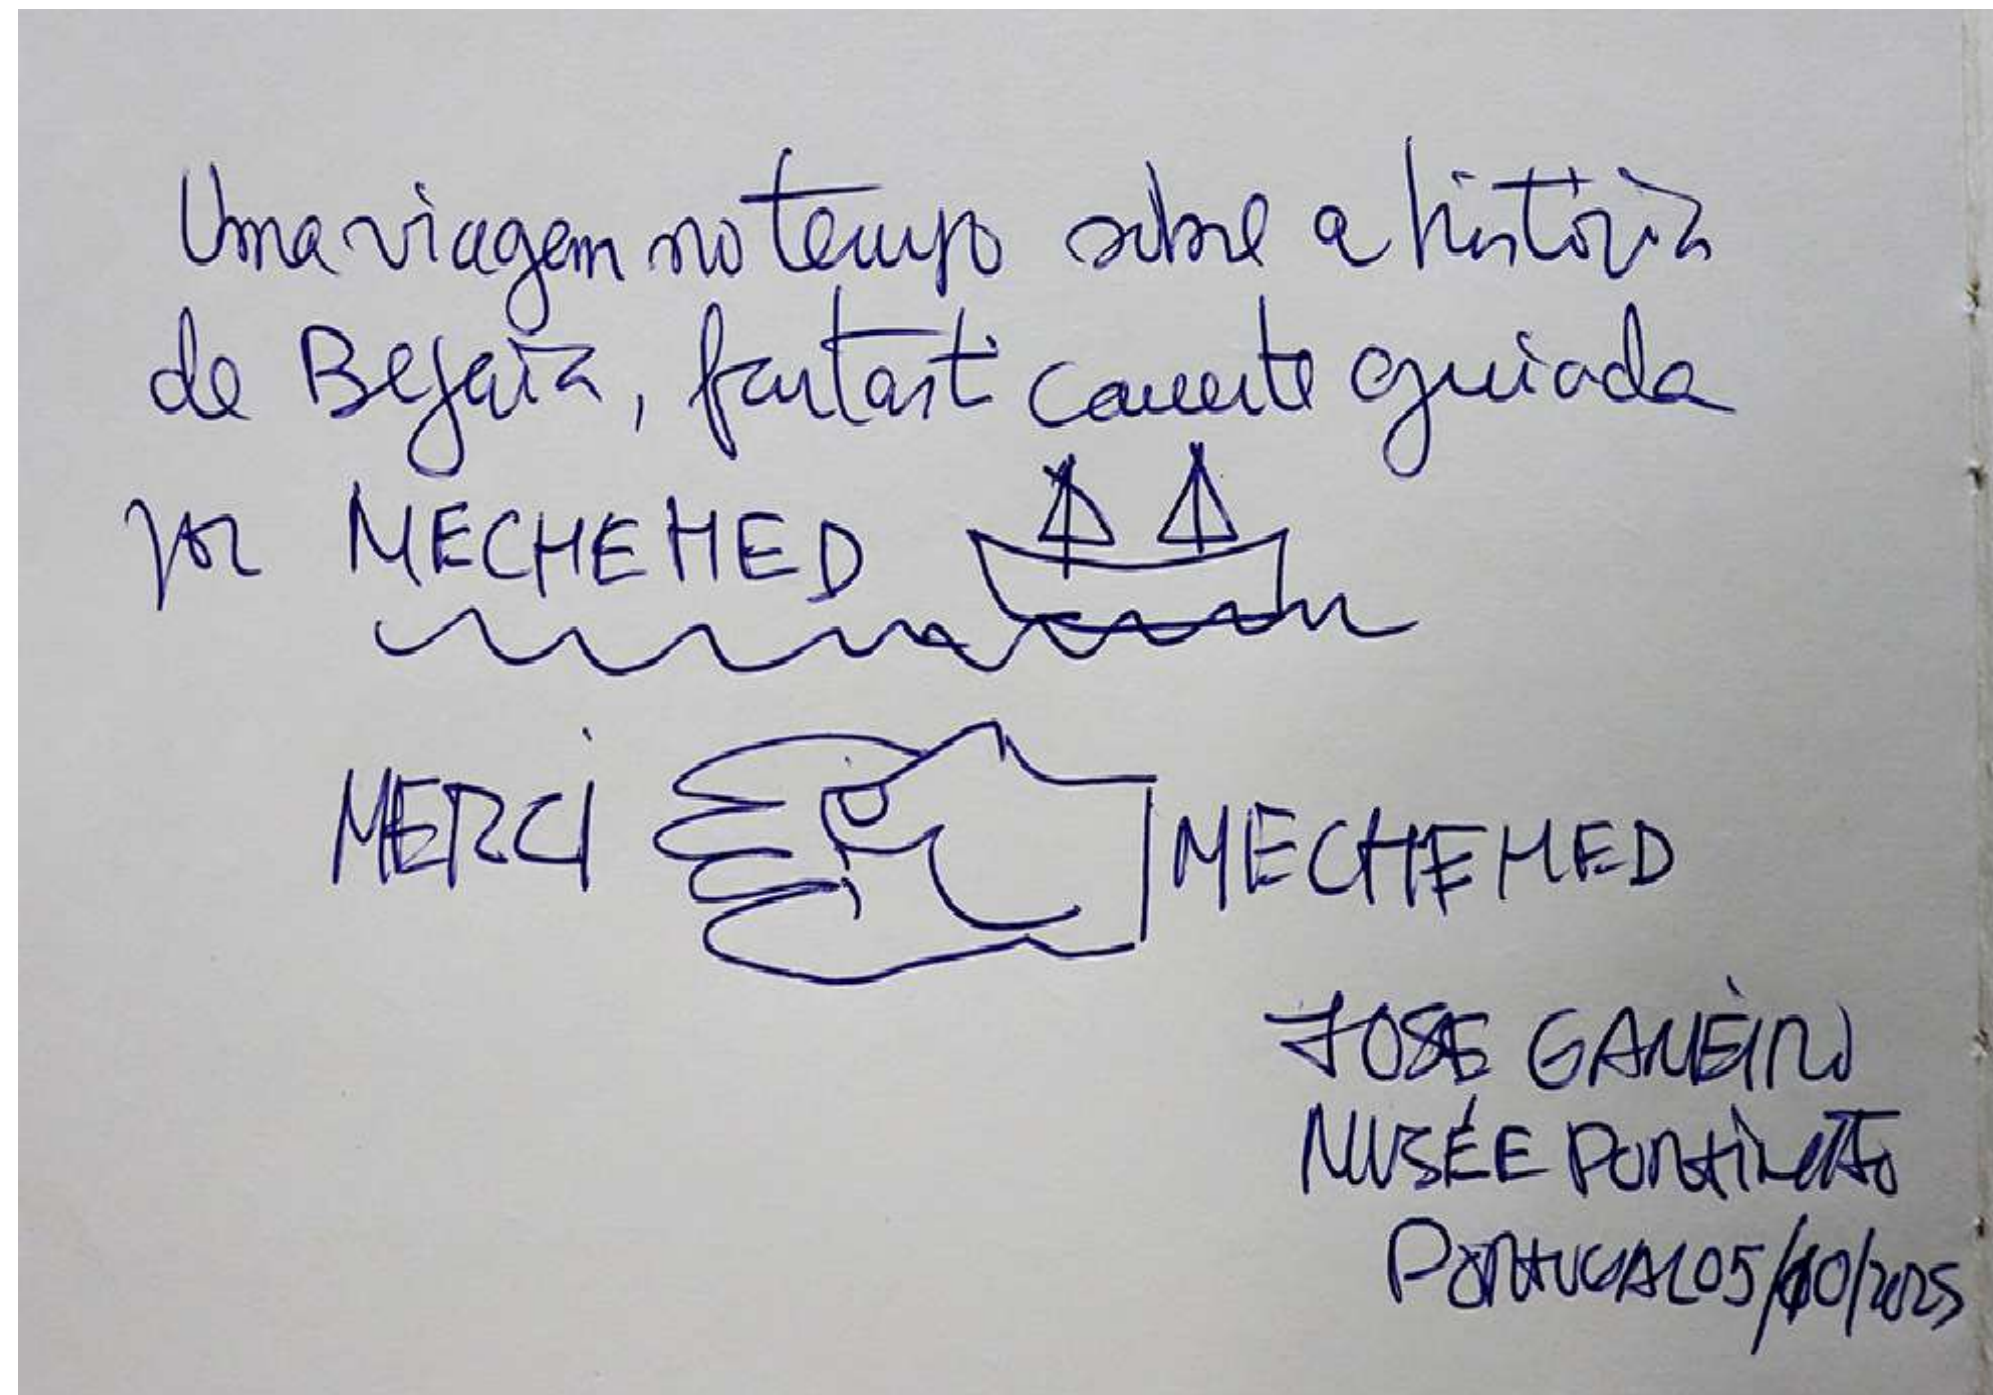 Uma viagem no tempo sobre a história
de Bejaia, fantasticamente guiada
por MECHEHED
MERCI MECHEHED
JOSÉ GAMEIRO
MUSÉE PORTIMÃO
PORTUGAL 05/10/2025